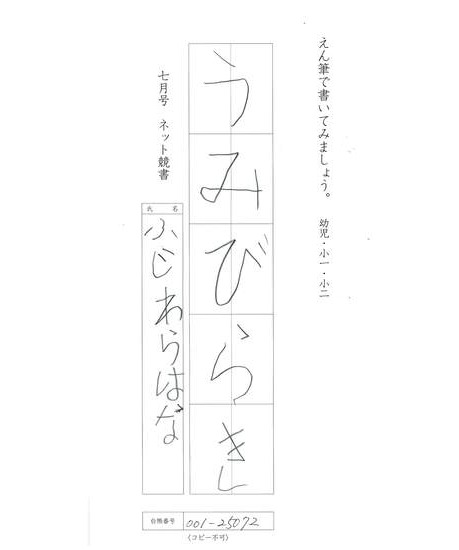 えん筆で書いてみましょう。 幼児・小一・小二
うみびらき
七月号 ネット競書
氏名
ふじわらはな
台帳番号 001-25072
(コピー不可)